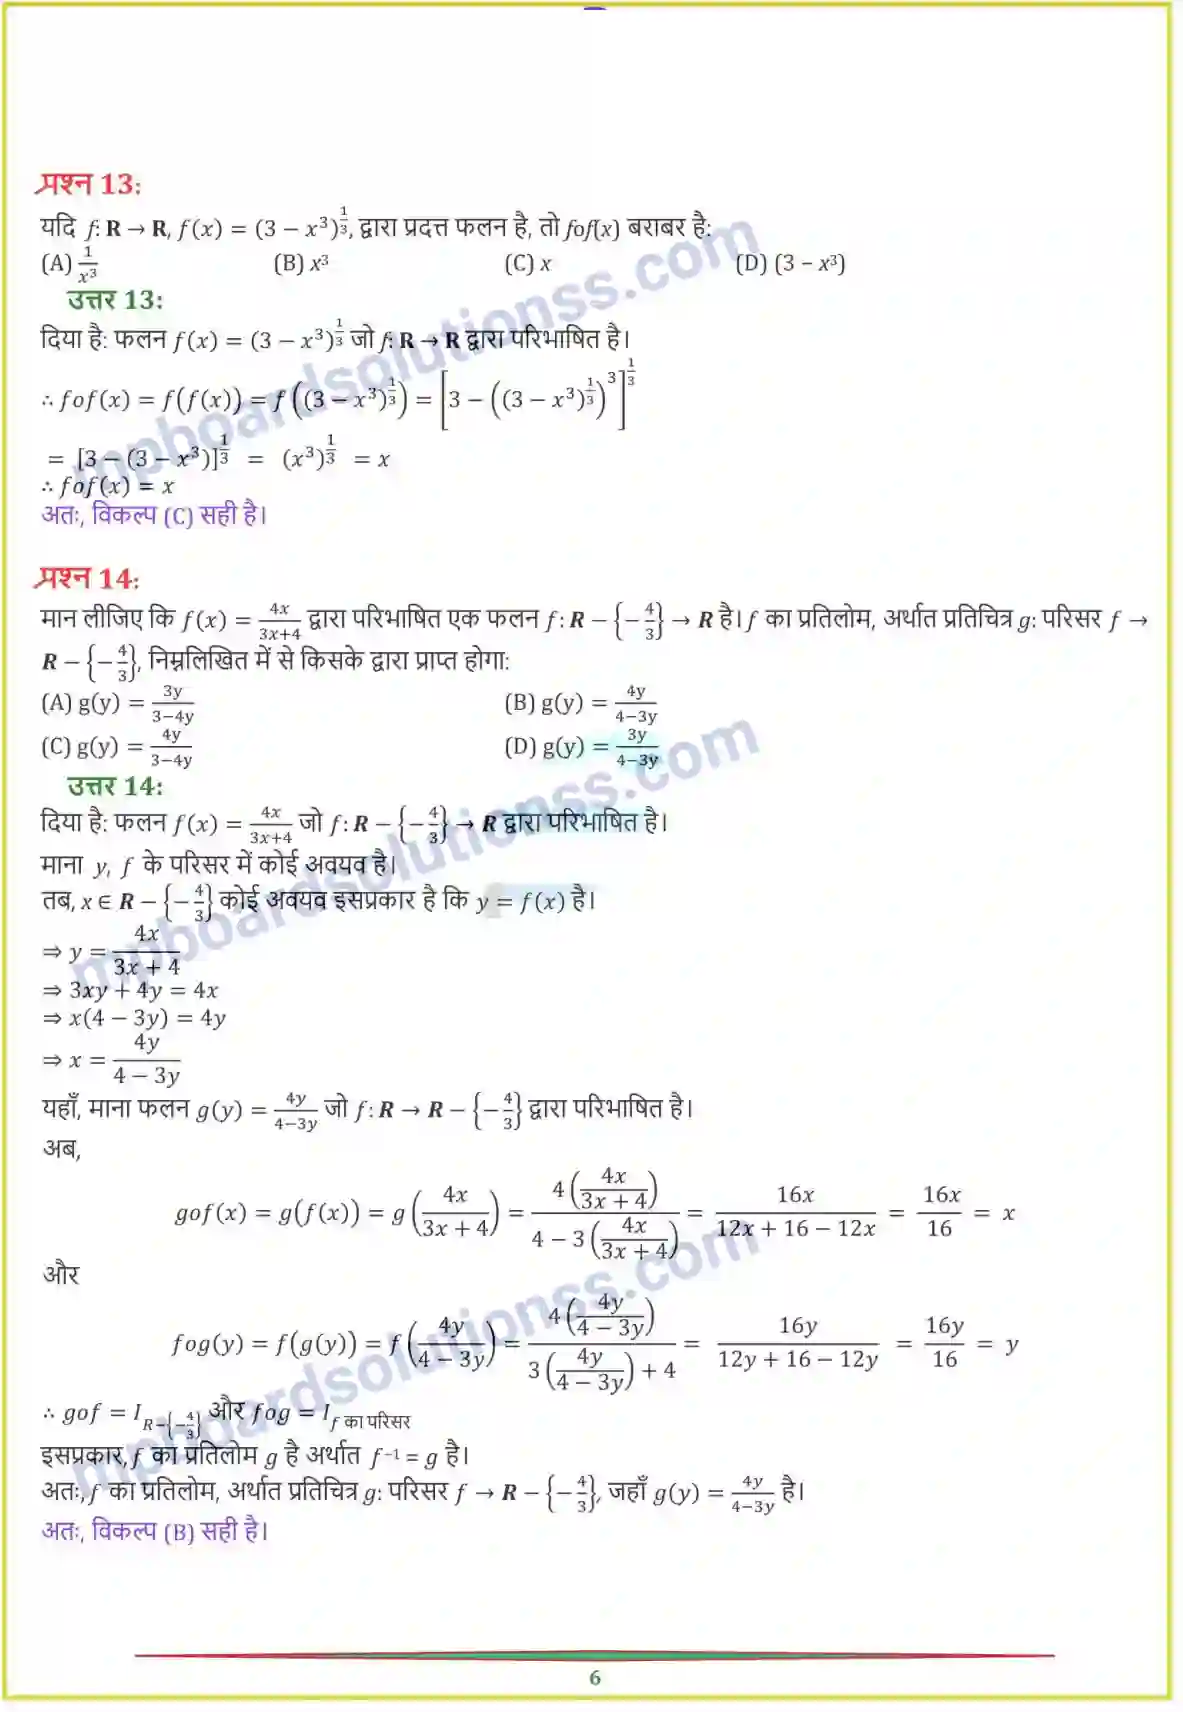 प्रश्न 13:
यदि f: R → R, f(x) = (3 − x³)^{1/3}, द्वारा प्रदत्त फलन है, तो fof(x) बराबर है:
(A) 1/x³ (B) x³ (C) x (D) (3 – x³)
उत्तर 13:
दिया है: फलन f(x) = (3 − x³)^{1/3} जो f: R → R द्वारा परिभाषित है।
∴ fof(x) = f(f(x)) = f((3 − x³)^{1/3}) = [3 − ((3 − x³)^{1/3})³]^{1/3}
= [3 − (3 − x³)]^{1/3} = (x³)^{1/3} = x
∴ fof(x) = x
अतः, विकल्प (C) सही है।
प्रश्न 14:
मान लीजिए कि f(x) = 4x/(3x+4) द्वारा परिभाषित एक फलन f: R − {−4/3} → R है। f का प्रतिलोम, अर्थात प्रतिचित्र g: परिसर f →
R − {−4/3}, निम्नलिखित में से किसके द्वारा प्राप्त होगा:
(A) g(y) = 3y/(3−4y) (B) g(y) = 4y/(4−3y)
(C) g(y) = 4y/(3−4y) (D) g(y) = 3y/(4−3y)
उत्तर 14:
दिया है: फलन f(x) = 4x/(3x+4) जो f: R − {−4/3} → R द्वारा परिभाषित है।
माना y, f के परिसर में कोई अवयव है।
तब, x ∈ R − {−4/3} कोई अवयव इसप्रकार है कि y = f(x) है।
⇒ y = 4x/(3x + 4)
⇒ 3xy + 4y = 4x
⇒ x(4 − 3y) = 4y
⇒ x = 4y/(4 − 3y)
यहाँ, माना फलन g(y) = 4y/(4−3y) जो f: R → R − {−4/3} द्वारा परिभाषित है।
अब,
gof(x) = g(f(x)) = g(4x/(3x + 4)) = 4(4x/(3x + 4))/(4 − 3(4x/(3x + 4))) = 16x/(12x + 16 − 12x) = 16x/16 = x
और
fog(y) = f(g(y)) = f(4y/(4 − 3y)) = 4(4y/(4 − 3y))/(3(4y/(4 − 3y)) + 4) = 16y/(12y + 16 − 12y) = 16y/16 = y
∴ gof = I_{R−{−4/3}} और fog = I_{f का परिसर}
इसप्रकार, f का प्रतिलोम g है अर्थात f⁻¹ = g है।
अतः, f का प्रतिलोम, अर्थात प्रतिचित्र g: परिसर f → R − {−4/3}, जहाँ g(y) = 4y/(4−3y) है।
अतः, विकल्प (B) सही है।
6
mpboardsolutionss.com
mpboardsolutionss.com
mpboardsolutionss.com